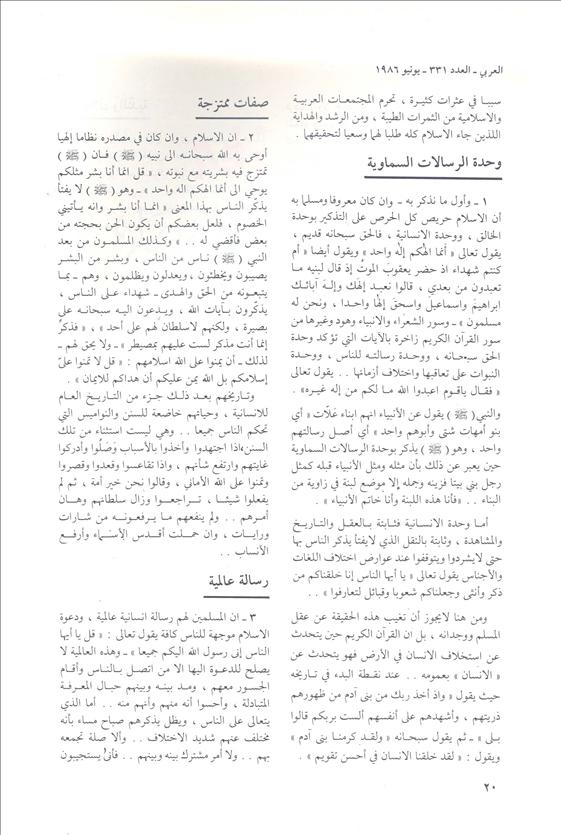 العربي ـ العدد ٣٣١ ـ يونيو ١٩٨٦
سببا في عثرات كثيرة ، تحرم المجتمعات العربية
والاسلامية من الثمرات الطيبة ، ومن الرشد والهداية
اللذين جاء الاسلام كله طلبا لهما وسعيا لتحقيقهما .
وحدة الرسالات السماوية
١ ـ وأول ما نذكر به ـ وان كان معروفا ومسلما به
أن الاسلام حريص كل الحرص على التذكير بوحدة
الخالق ، ووحدة الانسانية ، فالحق سبحانه قديم ،
يقول تعالى « أنما الهكم إله واحد » ويقول أيضا « أم
كنتم شهداء اذ حضر يعقوب الموت إذ قال لبنيه ما
تعبدون من بعدي ، قالوا نعبد إلهك وإله آبائك
ابراهيم واسماعيل واسحق إلها واحدا ، ونحن له
مسلمون » ـ وسور الشعراء والانبياء وهود وغيرها من
سور القرآن الكريم زاخرة بالآيات التي تؤكد وحدة
الحق سبحانه ، ووحدة رسالته للناس ، ووحدة
النبوات على تعاقبها واختلاف أزمانها .. يقول تعالى
« فقال ياقوم اعبدوا الله ما لكم من إله غيره» .
والنبي(ﷺ) يقول عن الأنبياء انهم ابناء غلّات « أي
بنو أمهات شتى وأبوهم واحد » أي أصل رسالتهم
واحد ، وهو (ﷺ) يذكر بوحدة الرسالات السماوية
حين يعبر عن ذلك بأن مثله ومثل الأنبياء قبله كمثل
رجل بنى بيتا فزينه وجمله إلا موضع لبنة في زاوية من
البناء .. «فأنا هذه اللبنة وأنا خاتم الأنبياء» .
أما وحدة الانسانية فثابتة بالعقل والتاريخ
والمشاهدة ، وثابتة بالنقل الذي لايفتأ يذكر الناس بها
حتى لايشردوا ويتوقفوا عند عوارض اختلاف اللغات
والأجناس يقول تعالى « يا أيها الناس إنا خلقناكم من
ذكر وأنثى وجعلناكم شعوبا وقبائل لتعارفوا » ..
ومن هنا لايجوز أن تغيب هذه الحقيقة عن عقل
المسلم ووجدانه ، بل ان القرآن الكريم حين يتحدث
عن استخلاف الانسان في الأرض فهو يتحدث عن
« الانسان » بعمومه .. عند نقطة البدء في تاريخه
حيث يقول «واذ أخذ ربك من بنى آدم من ظهورهم
ذريتهم ، وأشهدهم على أنفسهم ألست بربكم قالوا
بلى » ـ ثم يقول سبحانه « ولقد كرمنا بنى آدم »
ويقول : « لقد خلقنا الانسان في أحسن تقويم » .
صفات ممتزجة
٢ ـ ان الاسلام ، وان كان في مصدره نظاما إلهيا
أوحى به الله سبحانه الى نبيه (ﷺ) فان (ﷺ)
تمتزج فيه بشريته مع نبوته ، « قل انما أنا بشر مثلكم
يوحي الى أنما الهكم اله واحد » ـ وهو (ﷺ) لا يفتأ
يذكّر الناس بهذا المعنى «انما أنا بشر وانه يأتيني
الخصوم ، فلعل بعضكم أن يكون الحن بحجته من
بعض فأقضي له .. » وكذلك المسلمون من بعد
النبي (ﷺ) ناس من الناس ، وبشر من البشر
يصيبون ويخطئون ، ويعدلون ويظلمون ، وهم ـ بما
يتبعونه من الحق والهدى ـ شهداء على الناس ،
يذكّرون بآيات الله ، ويدعون اليه سبحانه على
بصيرة ، ولكنهم لاسلطان لهم على أحد » ، « فذكّر
إنما أنت مذكر لست عليهم بمصيطر » ـ ولا يحق لهم ـ
لذلك ـ أن يمنوا على الله اسلامهم : « قل لا تمنوا علىّ
إسلامكم بل الله يمن عليكم أن هداكم للايمان » .
وتاريخهم بعد ذلك جزء من التاريخ العام
للانسانية ، وحياتهم خاضعة للسنن والنواميس التي
تحكم الناس جميعا .. وهي ليست استثناء من تلك
السنن،اذا اجتهدوا وأخذوا بالأسباب وصلوا وأدركوا
غايتهم وارتفع شأنهم ، واذا تقاعسوا وقعدوا وقصروا
وتمنوا على الله الأماني ، وقالوا نحن خير أمة ، ثم لم
يفعلوا شيئا ، تراجعوا وزال سلطانهم وهان
أمرهم .. ولم ينفعهم ما يرفعونه من شارات
ورايات ، وان حملت أقدس الأسماء وأرفع
الأنساب ..
رسالة عالمية
٣ ـ ان المسلمين لهم رسالة انسانية عالمية ، ودعوة
الاسلام موجهة للناس كافة يقول تعالى : « قل يا أيها
الناس إنى رسول الله اليكم جميعا » ـ وهذه العالمية لا
يصلح للدعوة اليها الا من اتصل بالناس وأقام
الجسور معهم ، ومد بينه وبينهم حبال المعرفة
المتبادلة ، وأحسوا أنه منهم وأنهم منه .. أما الذي
يتعالى على الناس ، ويظل يذكرهم صباح مساء بأنه
مختلف عنهم شديد الاختلاف .. وألا صلة تجمعه
بهم .. ولا أمر مشترك بينه وبينهم .. فأنى يستجيبون
٢٠